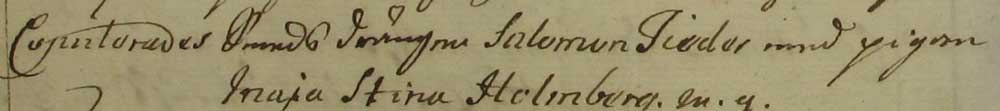 Copulerades Smeds drängen Salomon Tiedor med pigan
Maja Stina Holmberg. m. q.